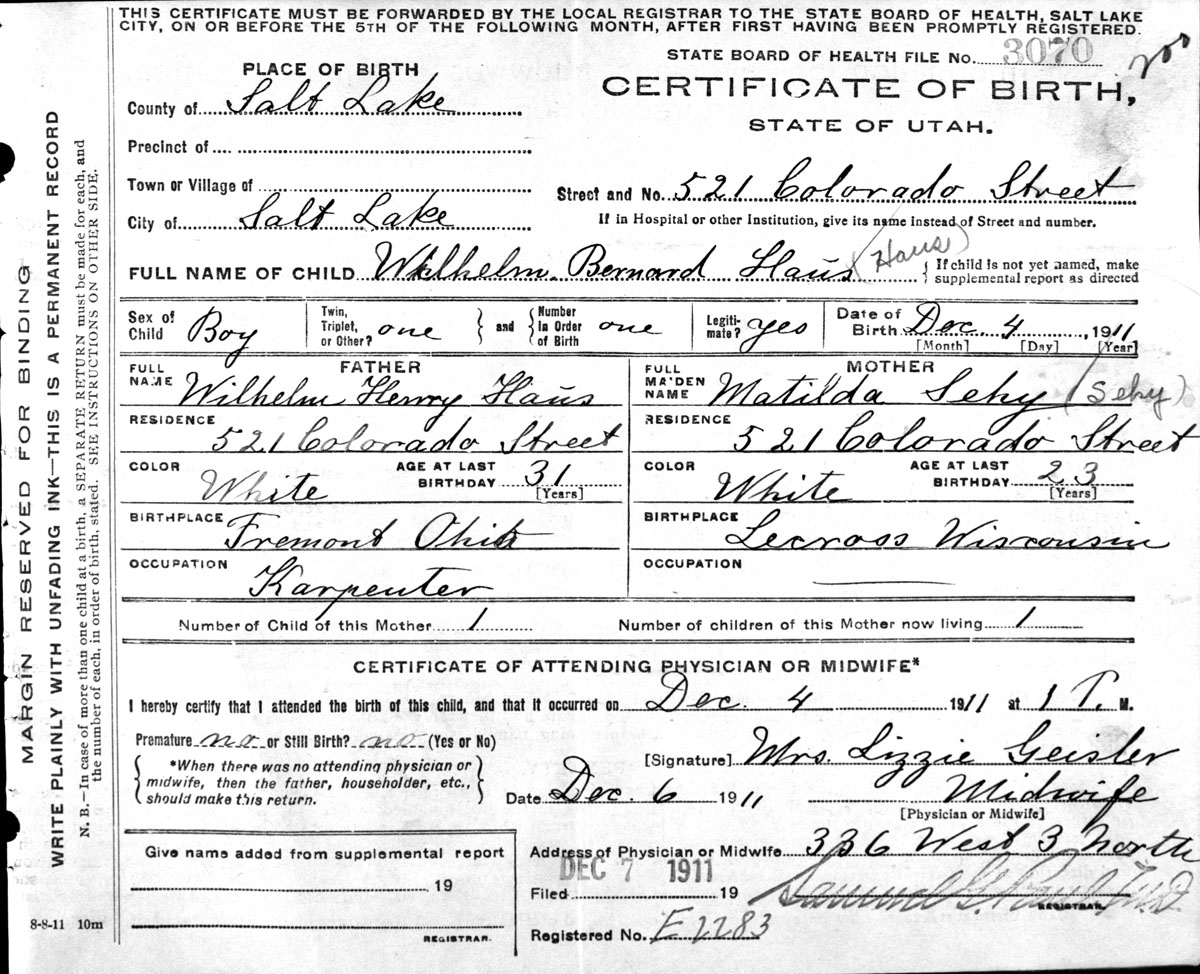 THIS CERTIFICATE MUST BE FORWARDED BY THE LOCAL REGISTRAR TO THE STATE BOARD OF HEALTH, SALT LAKE
CITY, ON OR BEFORE THE 5TH OF THE FOLLOWING MONTH, AFTER FIRST HAVING BEEN PROMPTLY REGISTERED.
STATE BOARD OF HEALTH FILE No. 3070
PLACE OF BIRTH
CERTIFICATE OF BIRTH,
STATE OF UTAH.
County of Salt Lake
Precinct of
Town or Village of
Street and No. 521 Colorado Street
City of Salt Lake
If in Hospital or other Institution, give its name instead of Street and number.
FULL NAME OF CHILD Wilhelm Bernard Haüs (Haus)
{ If child is not yet named, make
supplemental report as directed
Sex of Child Boy
Twin, Triplet, or Other? one
and
Number In Order of Birth one
Legiti-mate? yes
Date of Birth Dec. 4, 1911
[Month] [Day] [Year]
FATHER
FULL NAME Wilhelm Henry Haüs
RESIDENCE
521 Colorado Street
COLOR White
AGE AT LAST BIRTHDAY 31 [Years]
BIRTHPLACE
Fremont Ohio
OCCUPATION
Karpenter
MOTHER
FULL MAIDEN NAME Matilda Sehy (Sehy)
RESIDENCE
521 Colorado Street
COLOR White
AGE AT LAST BIRTHDAY 23 [Years]
BIRTHPLACE
Lecross Wisconsin
OCCUPATION
Number of Child of this Mother 1
Number of children of this Mother now living 1
CERTIFICATE OF ATTENDING PHYSICIAN OR MIDWIFE*
I hereby certify that I attended the birth of this child, and that it occurred on Dec. 4 1911 at 1 P. M.
Premature no or Still Birth? no (Yes or No)
*When there was no attending physician or
midwife, then the father, householder, etc.,
should make this return.
[Signature] Mrs. Lizzie Geisler
Date Dec. 6 1911 Midwife
[Physician or Midwife]
Give name added from supplemental report
19
REGISTRAR.
Address of Physician or Midwife 336 West 3 North
DEC 7 1911
Filed 19
REGISTRAR.
Registered No. E2283
8-8-11 10m
MARGIN RESERVED FOR BINDING
WRITE PLAINLY WITH UNFADING INK—THIS IS A PERMANENT RECORD
N. B.—In case of more than one child at a birth, a SEPARATE RETURN must be made for each, and
the number of each, in order of birth, stated. SEE INSTRUCTIONS ON OTHER SIDE.